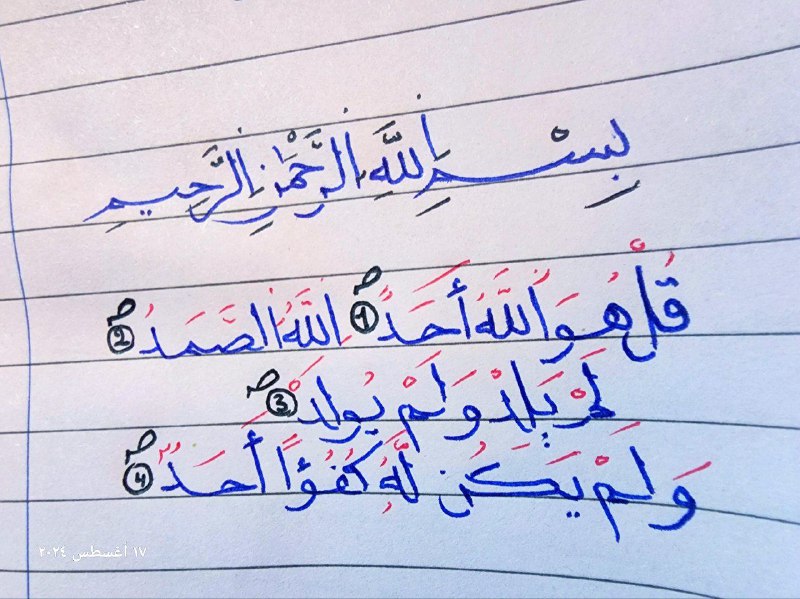 بِسْمِ اللَّهِ الرَّحْمَٰنِ الرَّحِيمِ
قُلْ هُوَ اللَّهُ أَحَدٌ ص 1 اللَّهُ الصَّمَدُ ص 2
لَمْ يَلِدْ وَلَمْ يُولَدْ ص 3
وَلَمْ يَكُن لَّهُ كُفُؤًا أَحَدٌ ص 4
١٧ أغسطس ٢٠٢٤